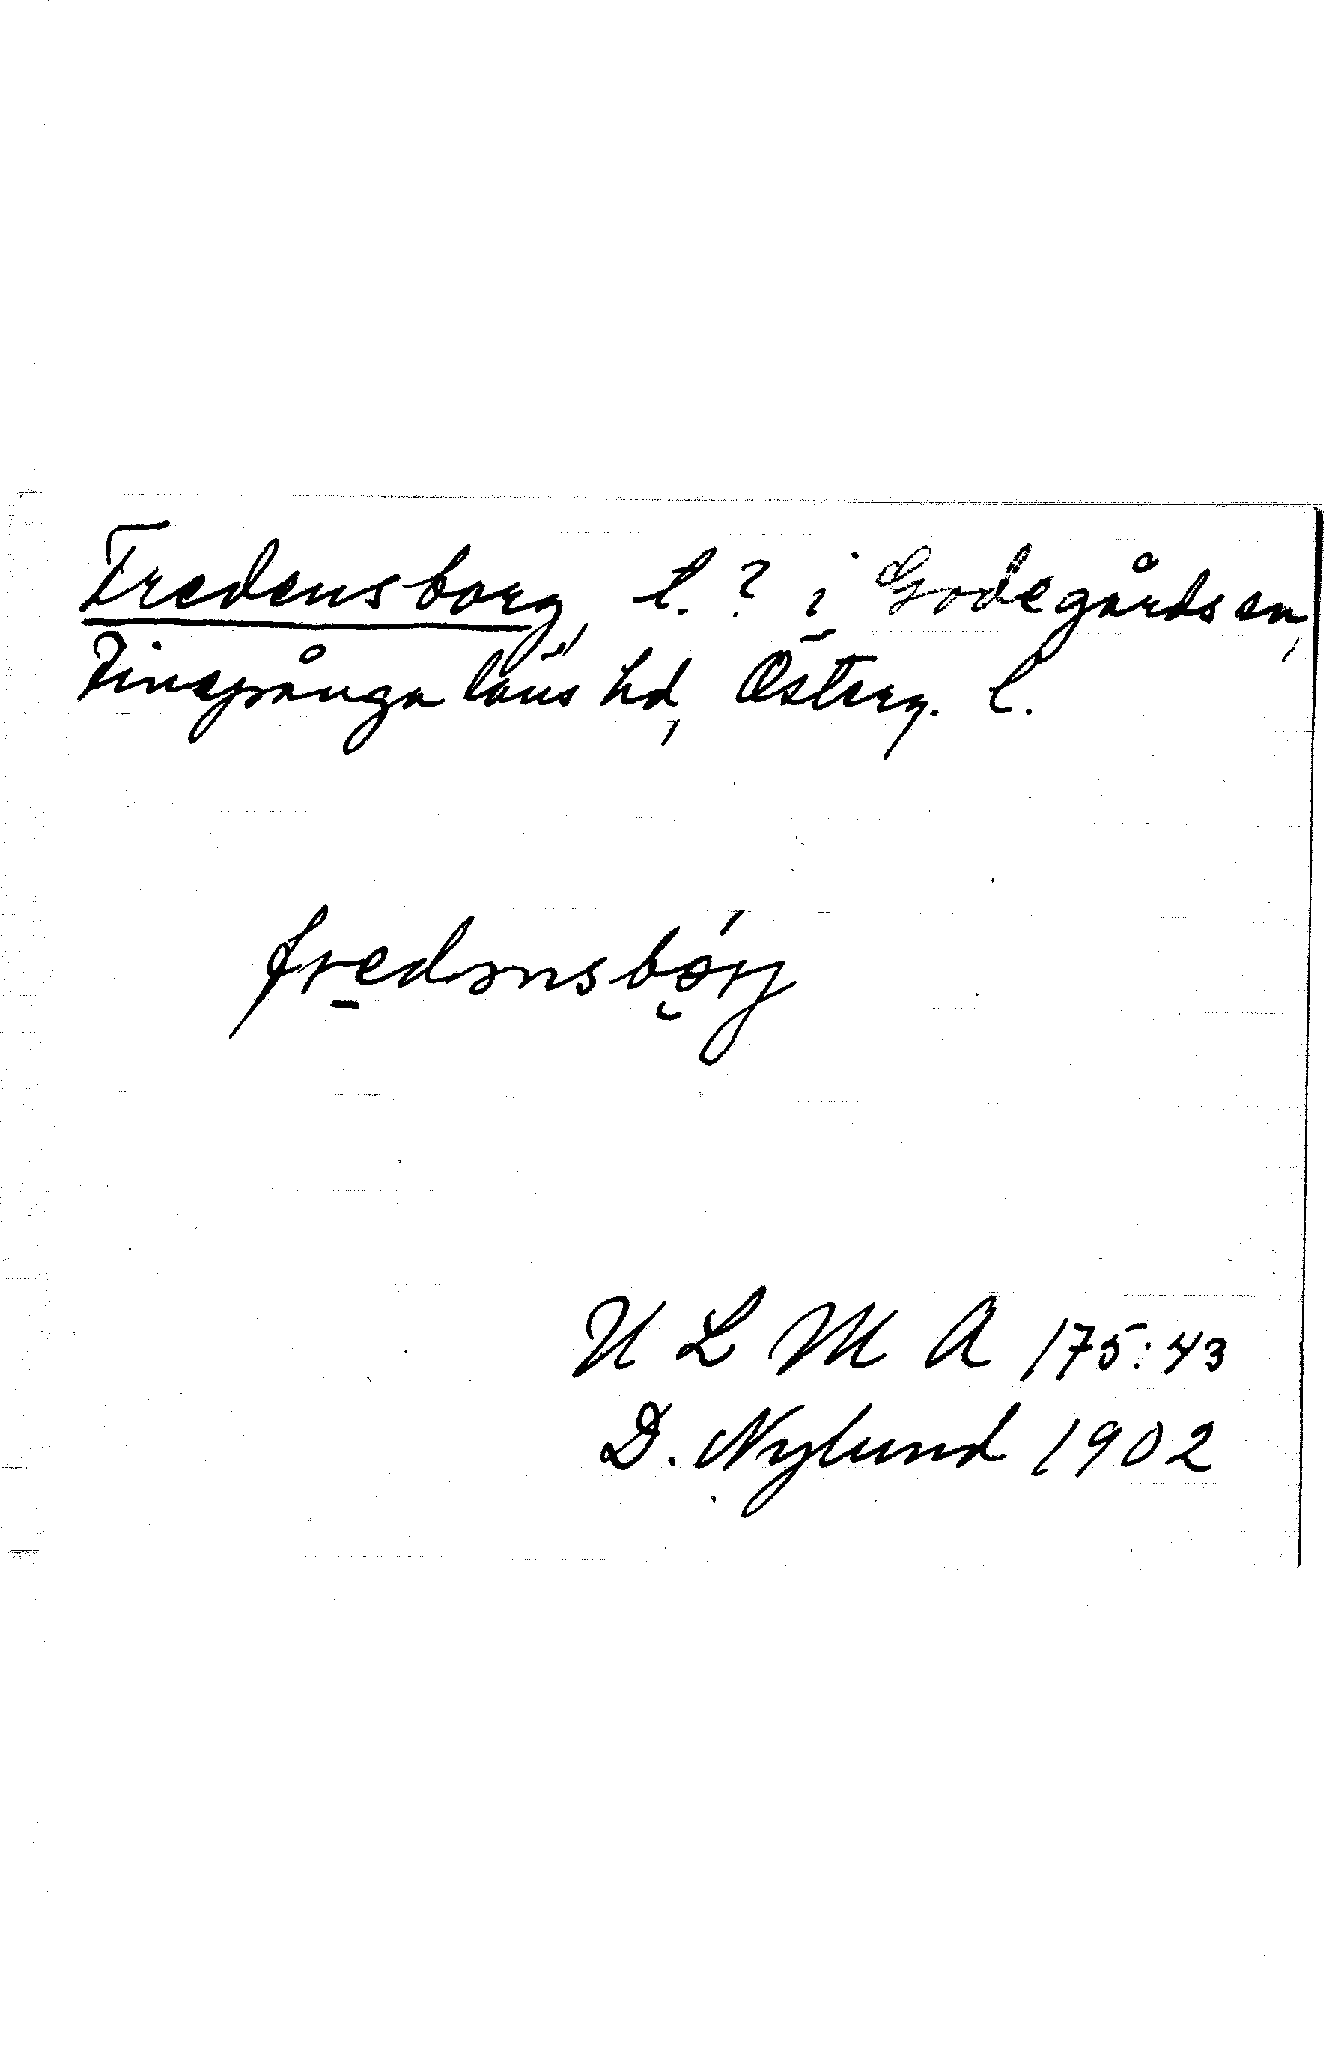 Fredensborg, l. ? i Godegårds sn,
Finspånga läns hd, Österg. l.
fredənsbǫ́rj
U L M A 175:43
D. Nylund 1902